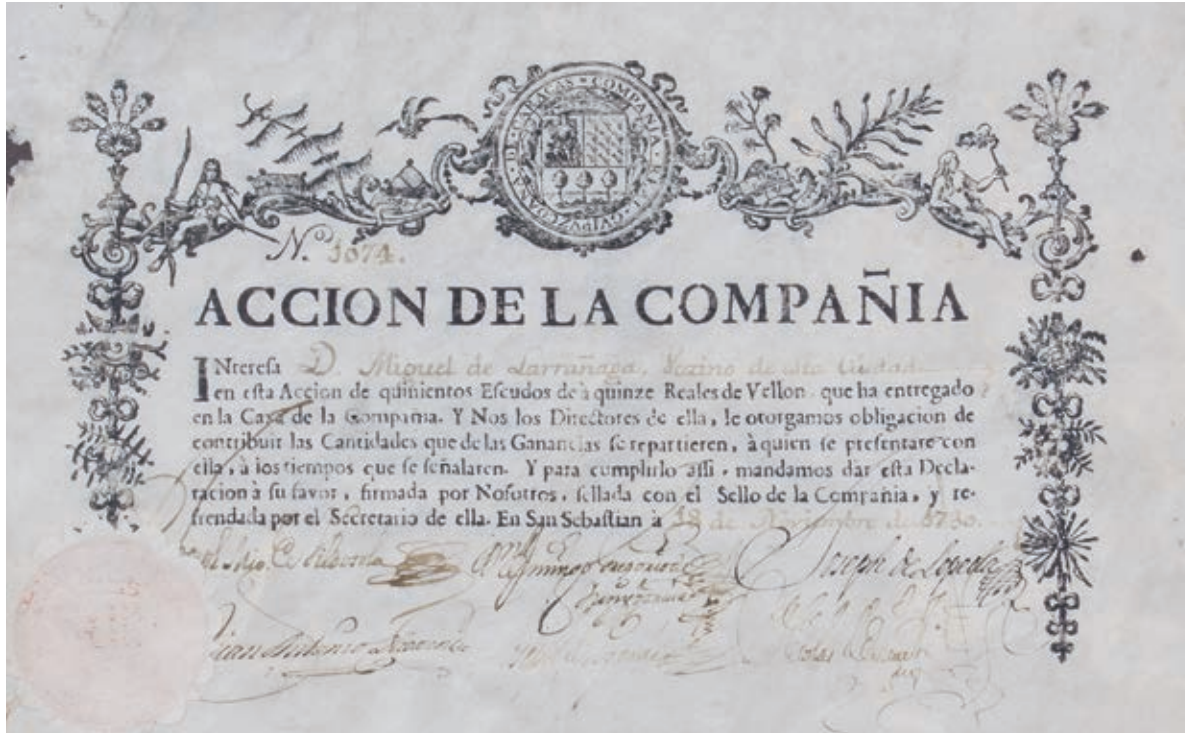 COMPAÑIA GVIPVZCOANA DE CARACAS
N.º 1674.
ACCION DE LA COMPAÑIA
INteresa D. Miguel de Larruñaga, Vozino de esta Ciudad
en esta Accion de quinientos Escudos de à quinze Reales de Vellon, que ha entregado
en la Caxa de la Compañia. Y Nos los Directores de ella, le otorgamos obligacion de
contribuir las Cantidades que de las Ganancias se repartieren, à quien se presentare con
ella, à los tiempos que se señalaren. Y para cumplirlo assi, mandamos dar esta Decla-
racion à su favor, firmada por Nosotros, sellada con el Sello de la Compañia, y re-
frendada por el Secretario de ella. En San Sebastian à 18 de Noviembre de 1730.
Joseph de Loyola
Juan Antonio